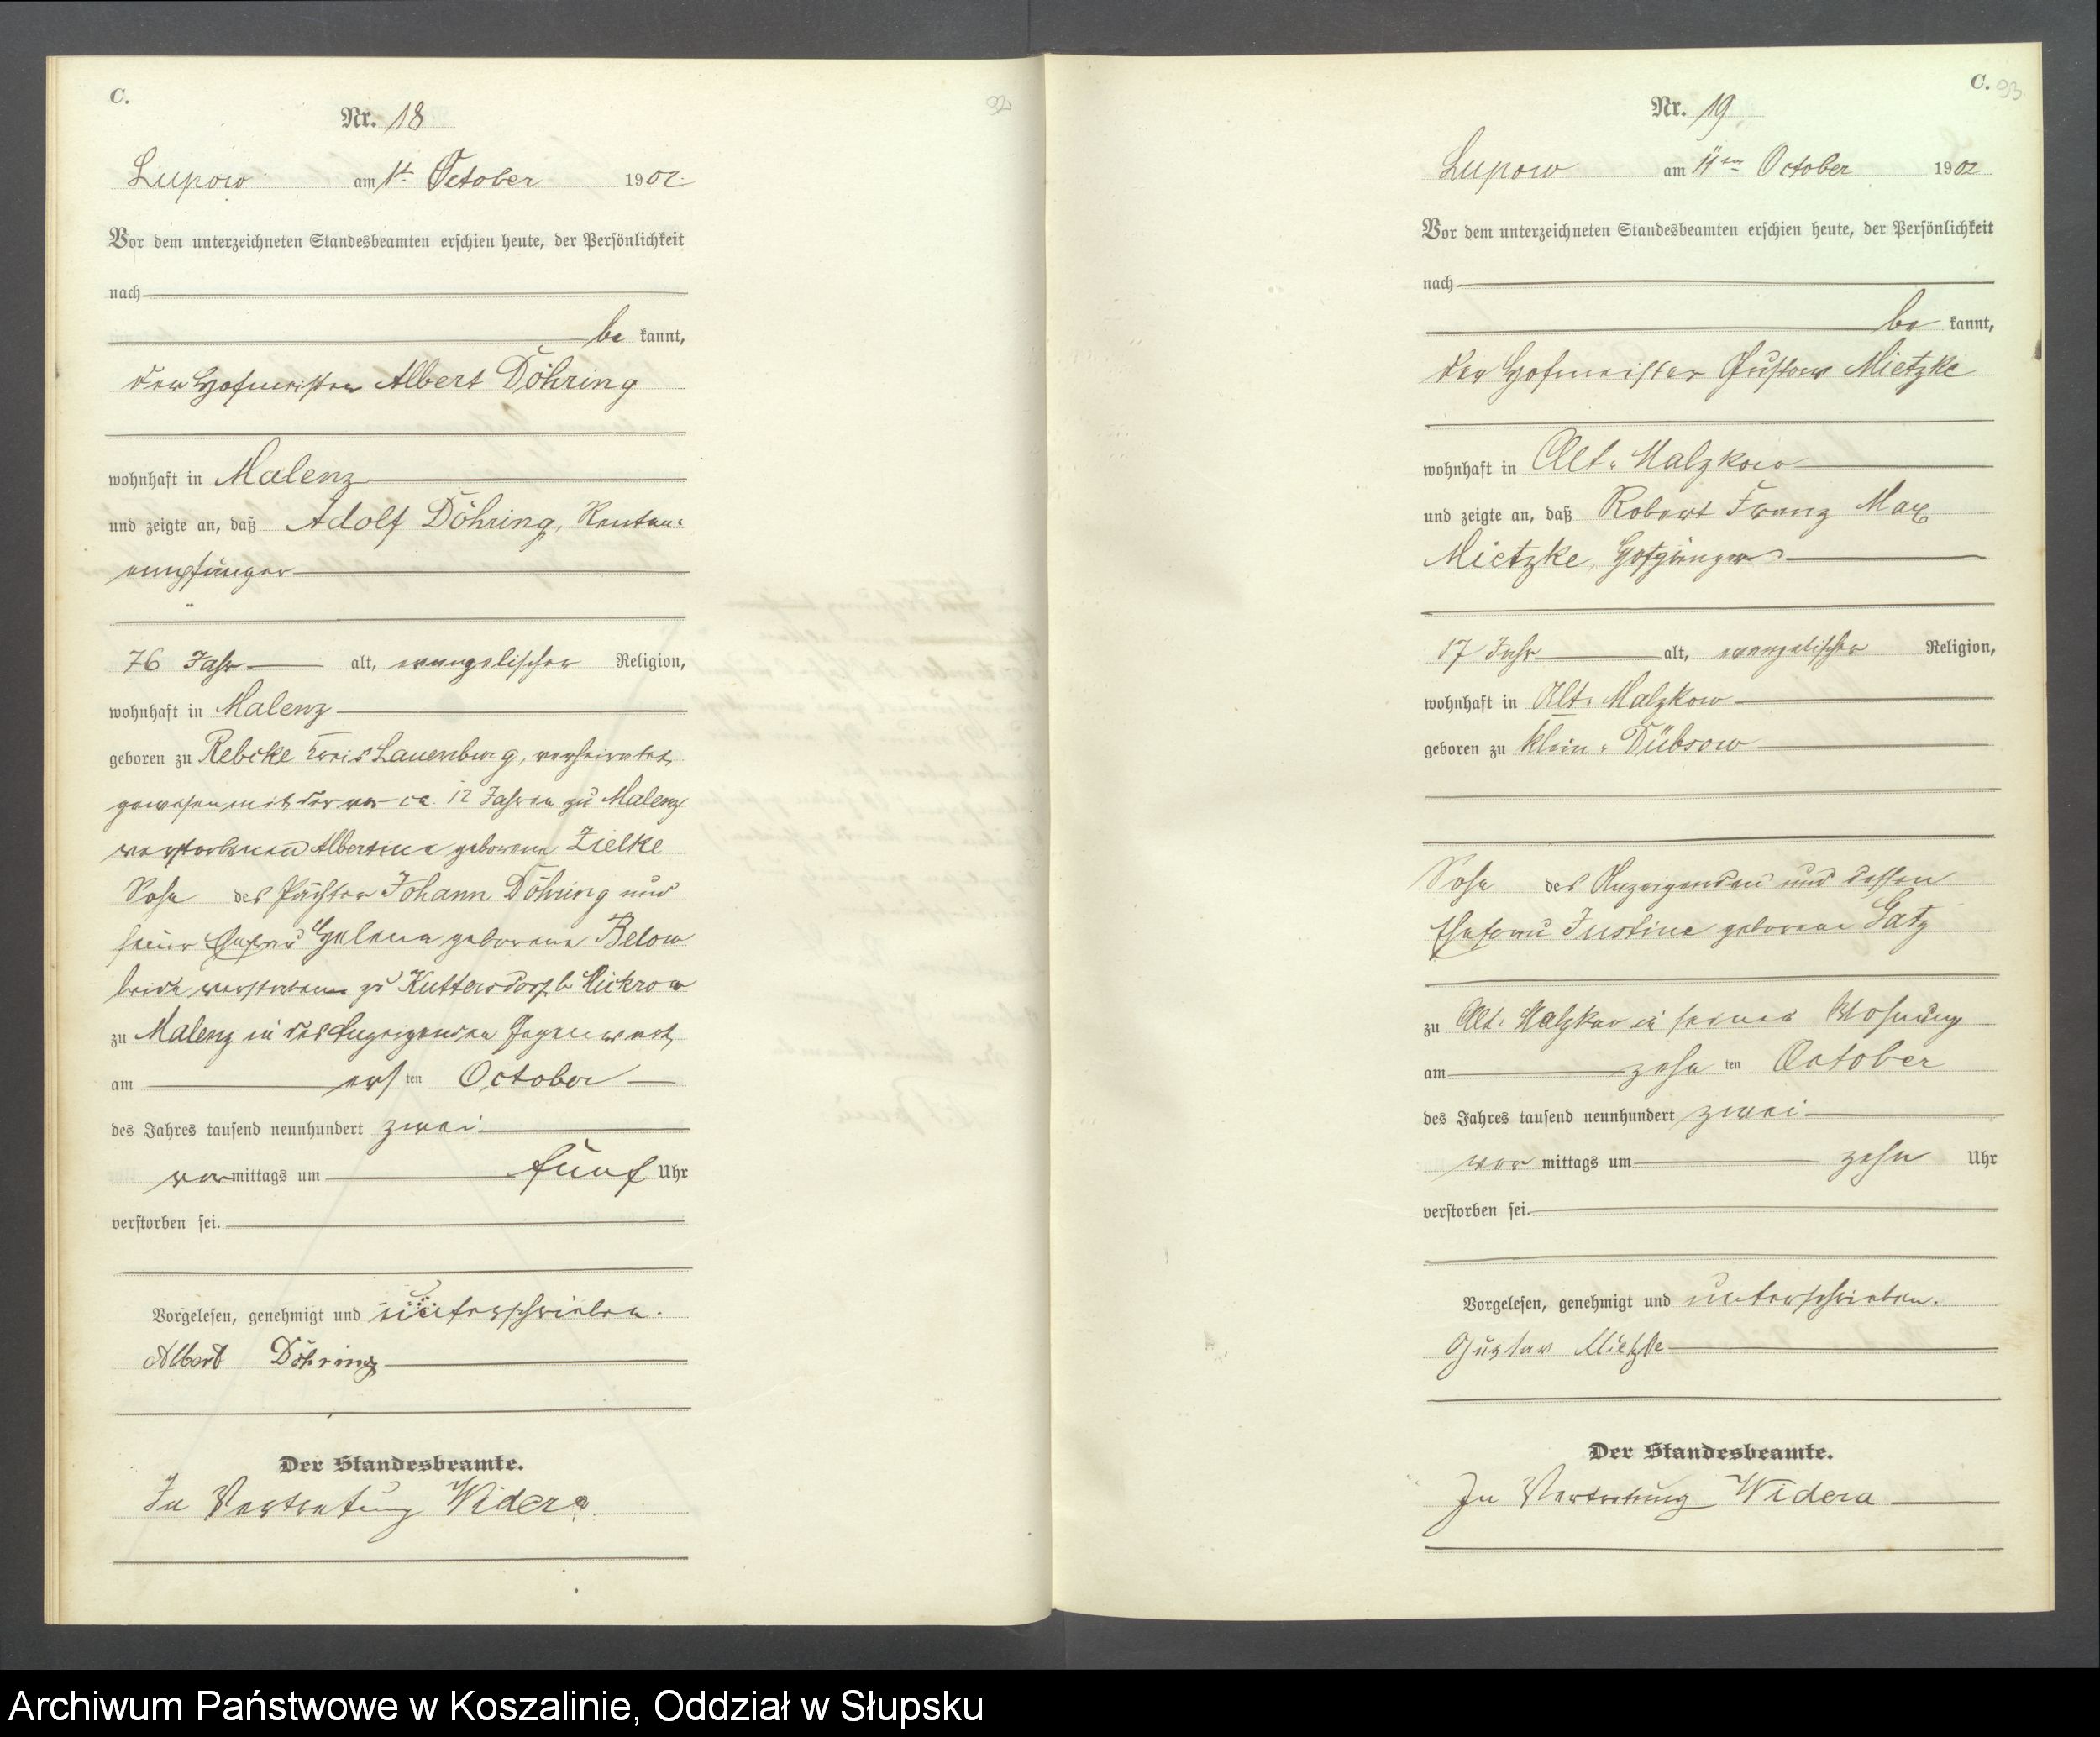 C.
92
Nr. 18
Lupow am 1t October 1902.
Vor dem unterzeichneten Standesbeamten erschien heute, der Persönlichkeit
nach
be kannt,
der Hofmeister Albert Döhring
wohnhaft in Malenz
und zeigte an, daß Adolf Döhring, Renten-
empfänger
76 Jahr alt, evangelischer Religion,
wohnhaft in Malenz
geboren zu Rebcke Kreis Lauenburg, verheirathet
gewesen mit der vor ca. 12 Jahren zu Malenz
verstorbenen Albertine geborene Zielke
Sohn des Pächter Johann Döhring und
seiner Ehefrau Helena geborene Below
beide verstorben zu Kuttersdorf b. Mickrow
zu Malenz in des Anzeigenden Gegenwart
am ers ten October
des Jahres tausend neunhundert zwei
vor mittags um fünf Uhr
verstorben sei.
Vorgelesen, genehmigt und unterschrieben.
Albert Döhring
Der Standesbeamte.
In Vertretung Widera
C. 93
Nr. 19
Lupow am 11ten October 1902
Vor dem unterzeichneten Standesbeamten erschien heute, der Persönlichkeit
nach
be kannt,
der Hofmeister Gustav Mietzke
wohnhaft in Alt-Malzkow
und zeigte an, daß Robert Franz Max
Mietzke, Hofgänger
17 Jahr alt, evangelischer Religion,
wohnhaft in Alt-Malzkow
geboren zu Klein-Dübsow
Sohn des Anzeigenden und dessen
Ehefrau Justine geborene Gatz
zu Alt-Malzkow in seiner Wohnung
am zehn ten October
des Jahres tausend neunhundert zwei
vor mittags um zehn Uhr
verstorben sei.
Vorgelesen, genehmigt und unterschrieben.
Gustav Mietzke
Der Standesbeamte.
In Vertretung Widera
Archiwum Państwowe w Koszalinie, Oddział w Słupsku